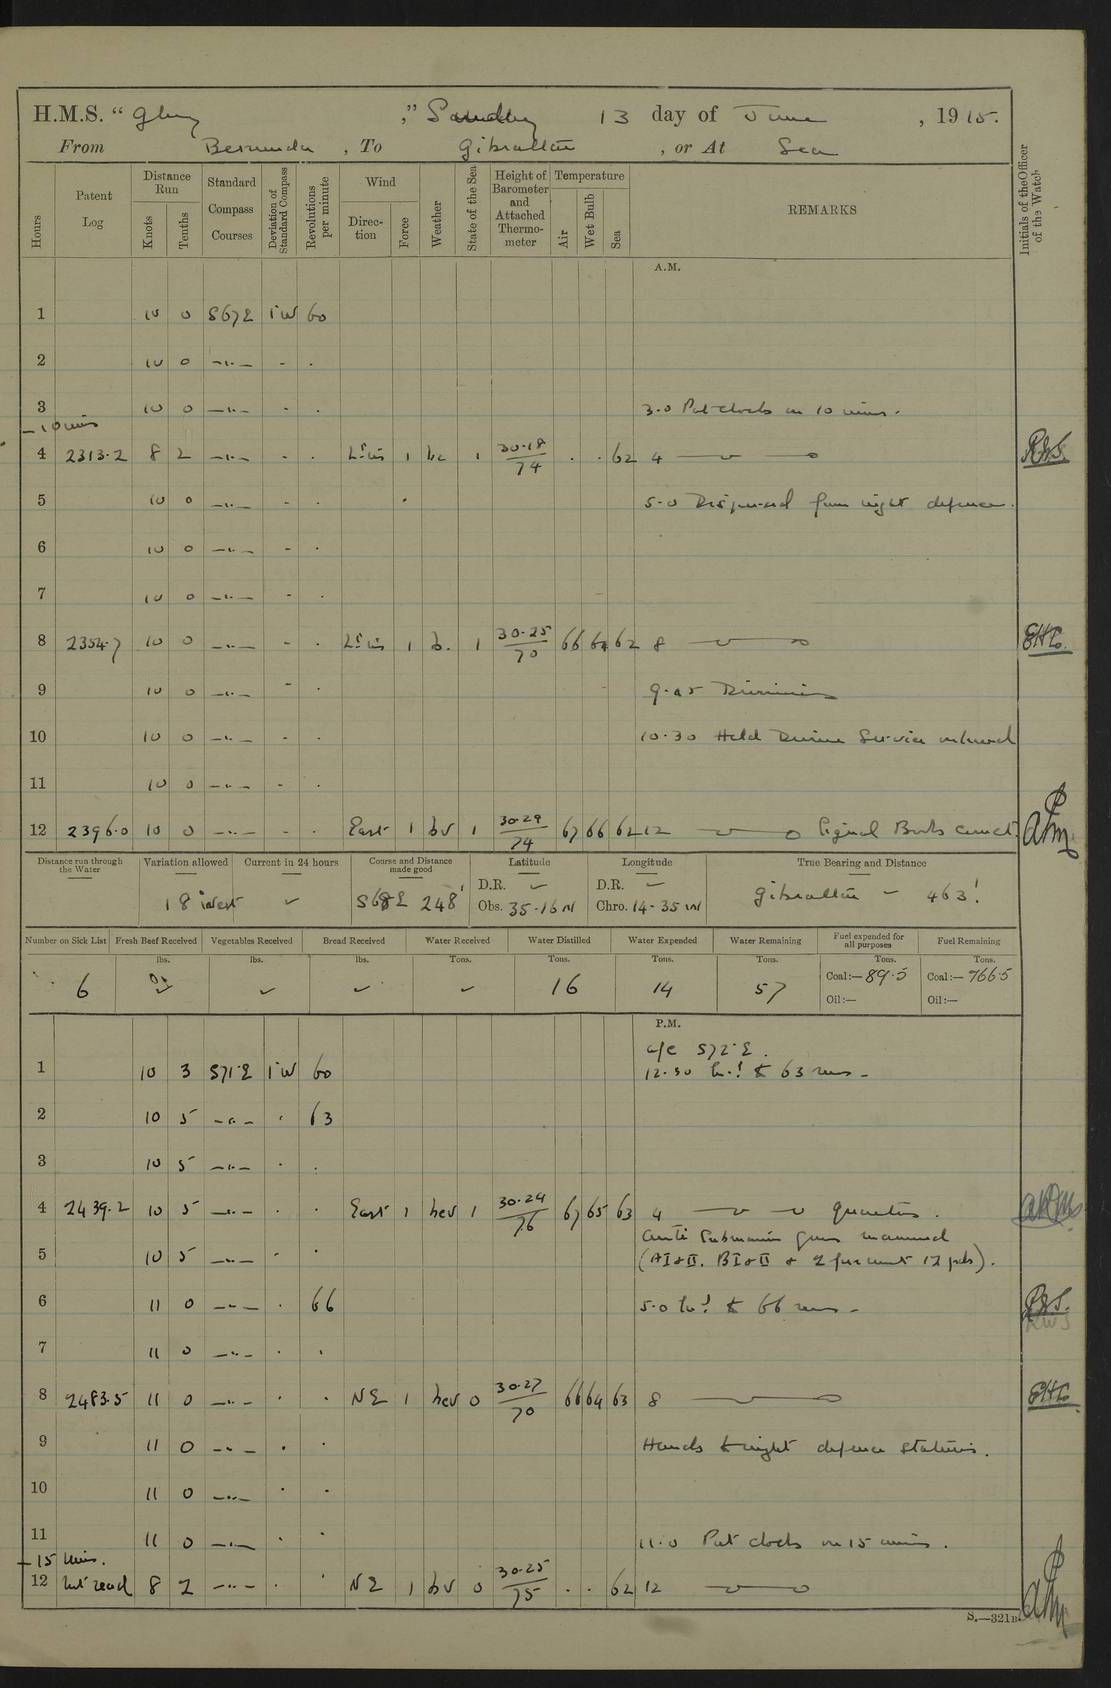 H.M.S. “ Glory ,” Sunday 13 day of June , 1915.
From Bermuda , To Gibraltar , or At Sea
Hours Patent Log Distance Run Knots Tenths Standard Compass Courses Deviation of Standard Compass Revolutions per minute Wind Direction Force Weather State of the Sea Height of Barometer and Attached Thermometer Temperature Air Wet Bulb Sea REMARKS Initials of the Officer of the Watch
A.M.
1 10 0 S67E 1W 60
2 10 0 —··— - ·
3 10 0 —··— - · 3·0 Put clocks on 10 mins.
–10 mins
4 2313·2 8 2 —··— - · Lt airs 1 bc 1 30·18/74 · · 62 4
5 10 0 —··— - · 5·0 Dispersed from night defence.
6 10 0 —··— - ·
7 10 0 —··— - ·
8 2354·7 10 0 —··— - · Lt airs 1 b. 1 30·25/70 66 64 62 8 EHC.
9 10 0 —··— - · 9·45 Divisions
10 10 0 —··— - · 10·30 Held Divine Service onboard
11 10 0 —··— - ·
12 2396·0 10 0 —··— - · East 1 bv 1 30·29/74 67 66 62 12 Signal Books correct.
Distance run through the Water Variation allowed Current in 24 hours Course and Distance made good Latitude Longitude True Bearing and Distance
18 West S68E 248' D.R. D.R. Gibraltar — 463'
Obs. 35-16 N Chro. 14-35 W
Number on Sick List Fresh Beef Received Vegetables Received Bread Received Water Received Water Distilled Water Expended Water Remaining Fuel expended for all purposes Fuel Remaining
lbs. lbs. lbs. Tons. Tons. Tons. Tons. Tons. Tons.
6 16 14 57 Coal:—89·5 Coal:—766·5
Oil:— Oil:—
P.M.
a/c S72E.
1 10 3 S71E 1W 60 12·30 Inc! to 63 revs.
2 10 5 —··— · 63
3 10 5 —··— · ·
4 2439·2 10 5 —··— · · East 1 bcv 1 30·24/76 67 65 63 4 quarters.
Anti Submarine guns manned
5 10 5 —··— · · (AI & II. BI & II & 2 12 pdrs).
6 11 0 —··— · 66 5·0 Inc! to 66 revs.
7 11 0 —··— · ·
8 2483·5 11 0 —··— · · NE 1 bcv 0 30·27/70 66 64 63 8 EHC.
9 11 0 —··— · · Hands to night defence stations.
10 11 0 —··— · ·
11 11 0 —··— · · 11·0 Put clocks on 15 mins.
–15 mins.
12 Not read 8 2 —··— · · NE 1 bv 0 30·25/75 · · 62 12
S.—321B.